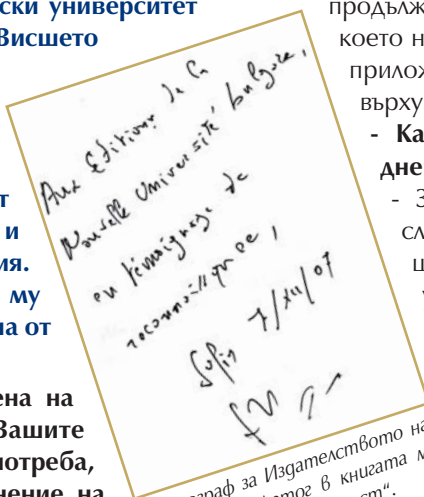 ски университет
Висшето
т
и
ия.
му
на от
ена на
Вашите
потреба,
нение на
Aux Editions de la
Nouvelle Université bulgare,
en témoignage de
reconnaissance,
Sofia 7/XII/07
продълж
което н
прилож
върху
- Ка
дне
- З
сл
щ
граф за Издателството на
в книгата м
ст“.